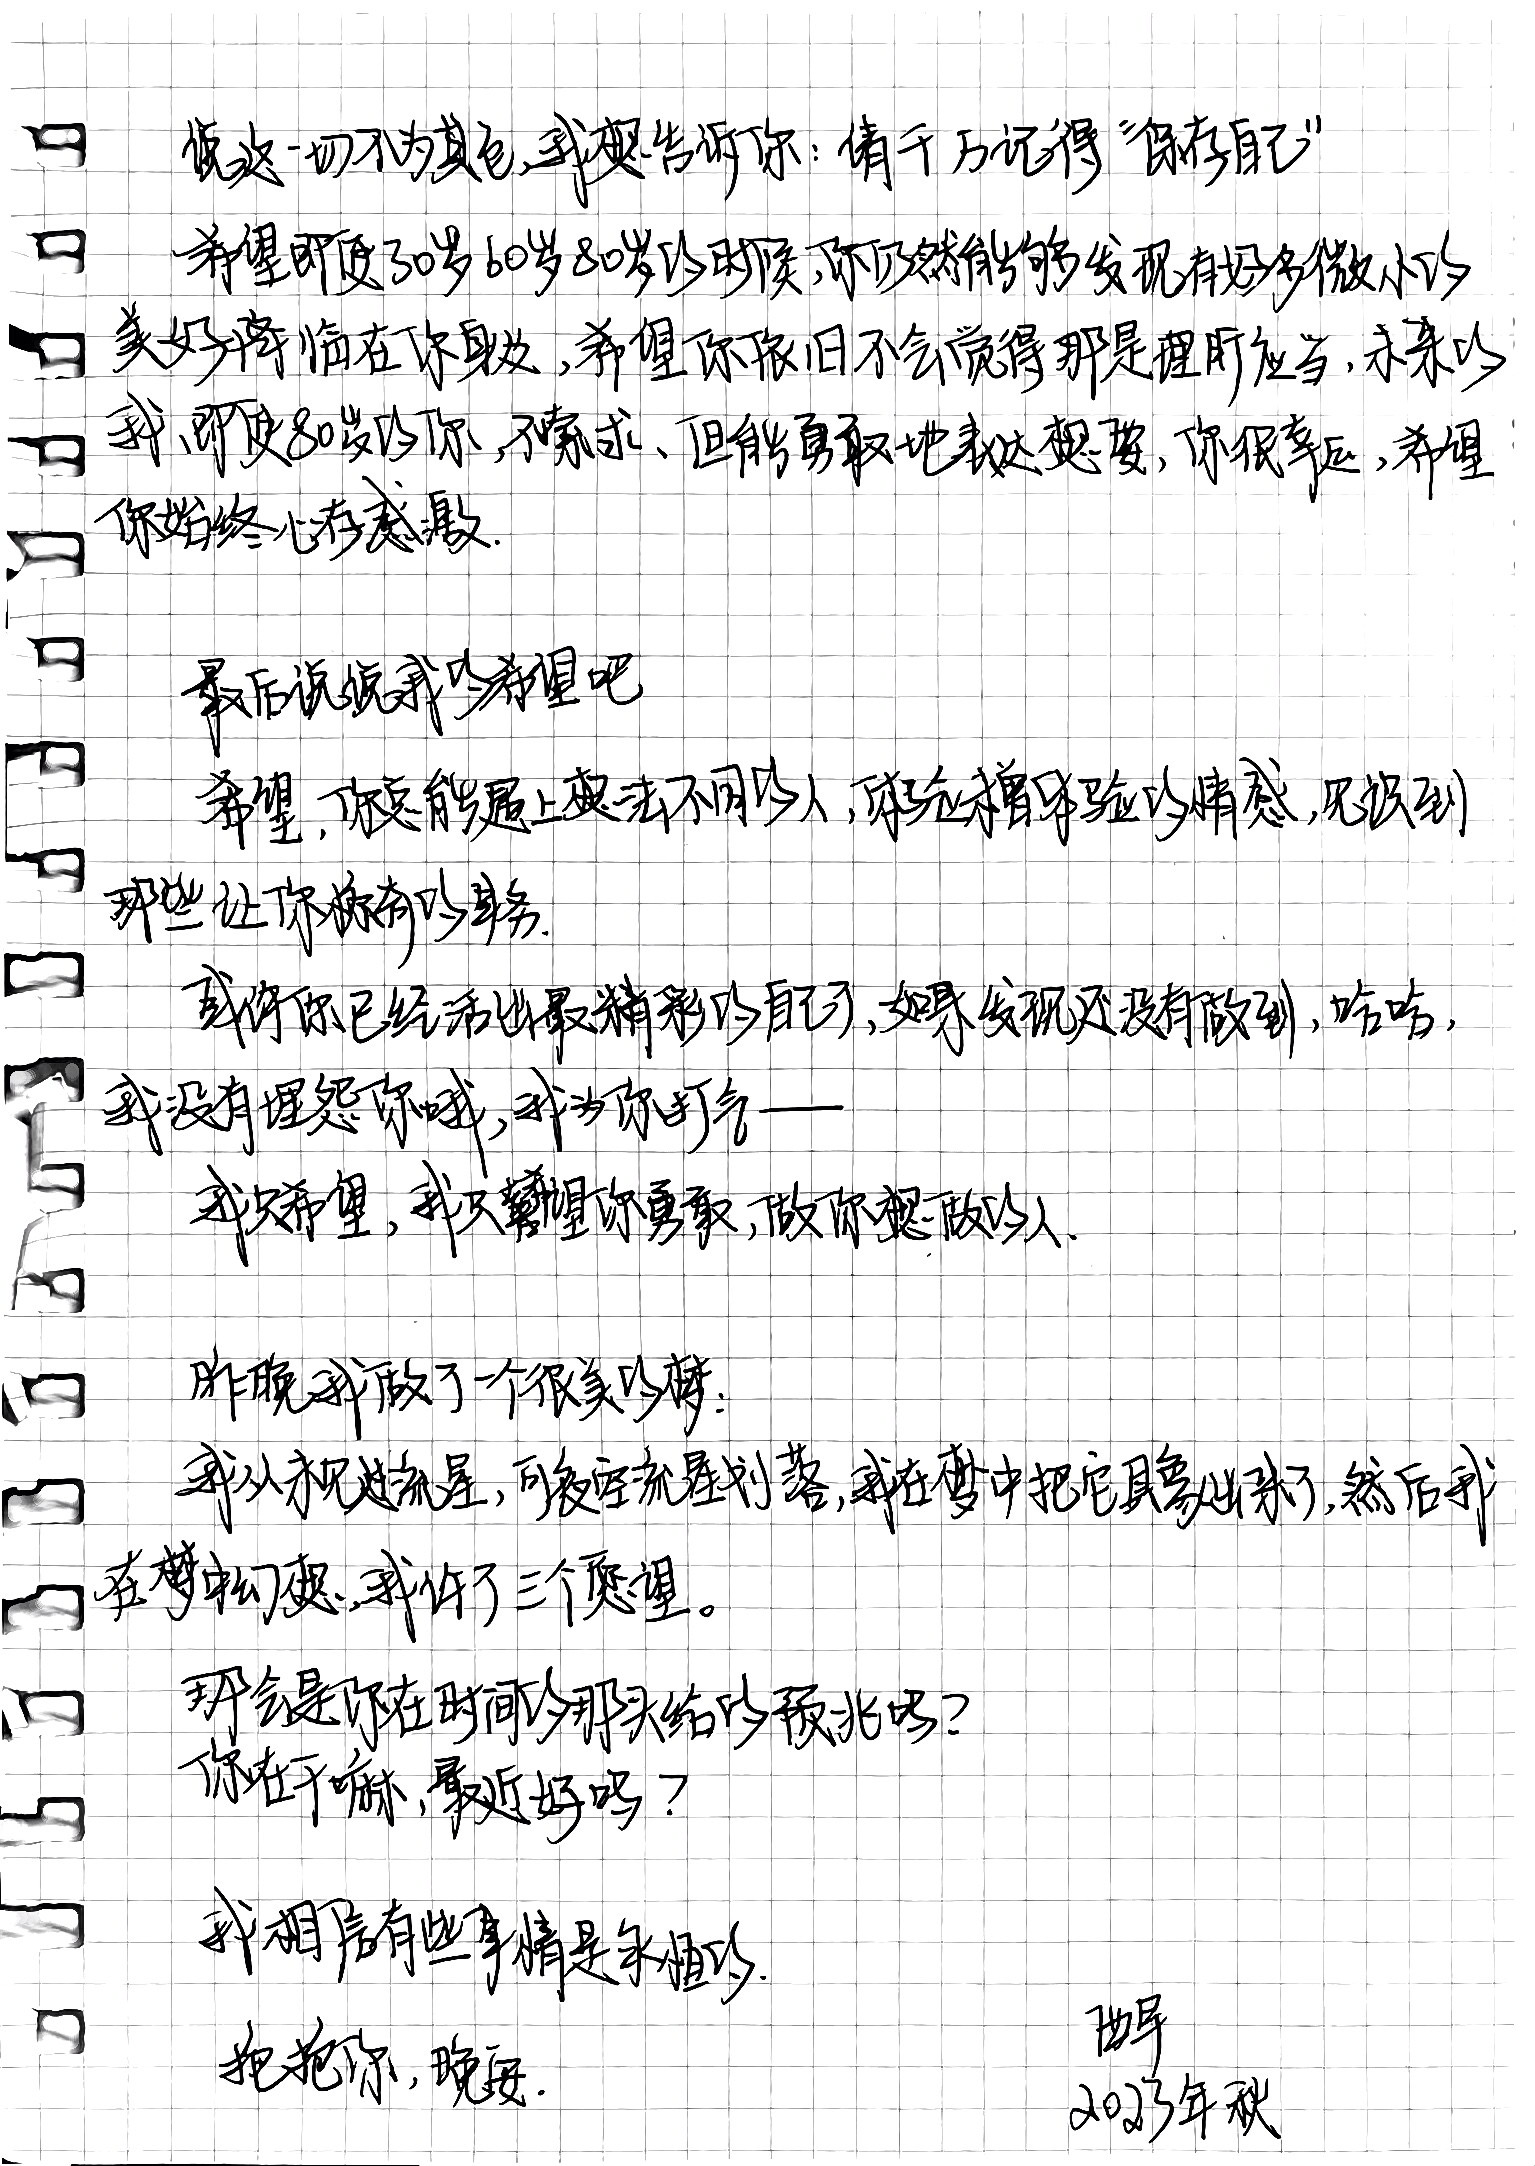 说这一切不为其它,我想告诉你：请千万记得“保存自己”
希望即使30岁60岁80岁的时候,你仍然能够发现有好多微小的
美好降临在你身边,希望你依旧不会觉得那是理所应当,未来的
我、即使80岁的你,不索求、但能勇敢地表达想要,你很幸运,希望
你始终心存感激.
最后说说我的希望吧
希望,你总能遇上想法不同的人,体验未曾体验的情感,见识到
那些让你称奇的事务.
或许你已经活出最精彩的自己了,如果发现还没有做到,哈哈,
我没有埋怨你哦,我为你打气——
我只希望,我只希望你勇敢,做你想做的人.
昨晚我做了一个很美的梦:
我从未见过流星,可夜空流星划落,我在梦中把它具象出来了,然后我
在梦中幻想,我许了三个愿望。
那会是你在时间的那头给的预兆吗?
你在干嘛,最近好吗?
我相信有些事情是永恒的.
抱抱你,晚安.
2023年秋